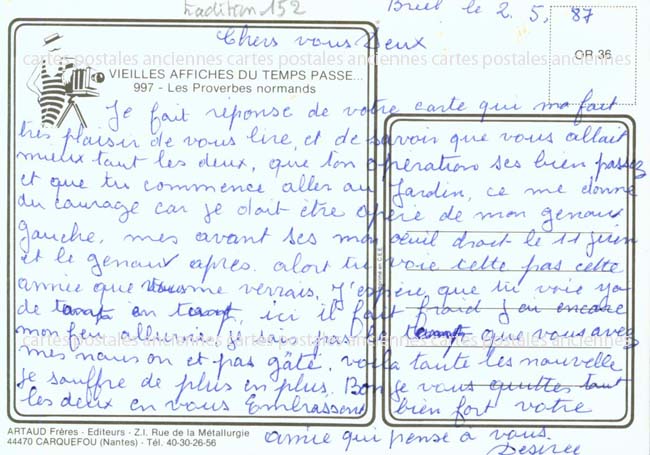 tradition 152
Breil le 2. 5. 87
Chers vous Deux
cartes postales anciennes cartes postales anciennes cartes postales anciennes
OR 36
VIEILLES AFFICHES DU TEMPS PASSE...
997 - Les Proverbes normands
Je fait réponse de votre carte qui ma fait
très plaisir de vous lire, et de savoir que vous allait
mieux tout les deux, que ton opération ses bien passez
et que tu commence aller au Jardin, ce me donne
du courage car je doit être opéré de mon genoux
gauche, mes avant ses mon oeuil droit le 11 juin
et le genoux après. alort tu voie cette pas cette
année que vous me verrais. J'espère que tu voie yo
de temp en temp, ici il fait froid j'ai encore
mon feu allumé je sais pas le temp que vous avez
cartes postales anciennes cartes postales anciennes cartes postales anciennes
mes nous on et pas gâté. voila toute les nouvelle
je souffre de plus en plus. Bon je vous quittes tout
les deux en vous Embrassent bien fort votre
amie qui pense a vous.
Desirée
ARTAUD Frères - Editeurs - Z.I. Rue de la Métallurgie
44470 CARQUEFOU (Nantes) - Tél. 40-30-26-56